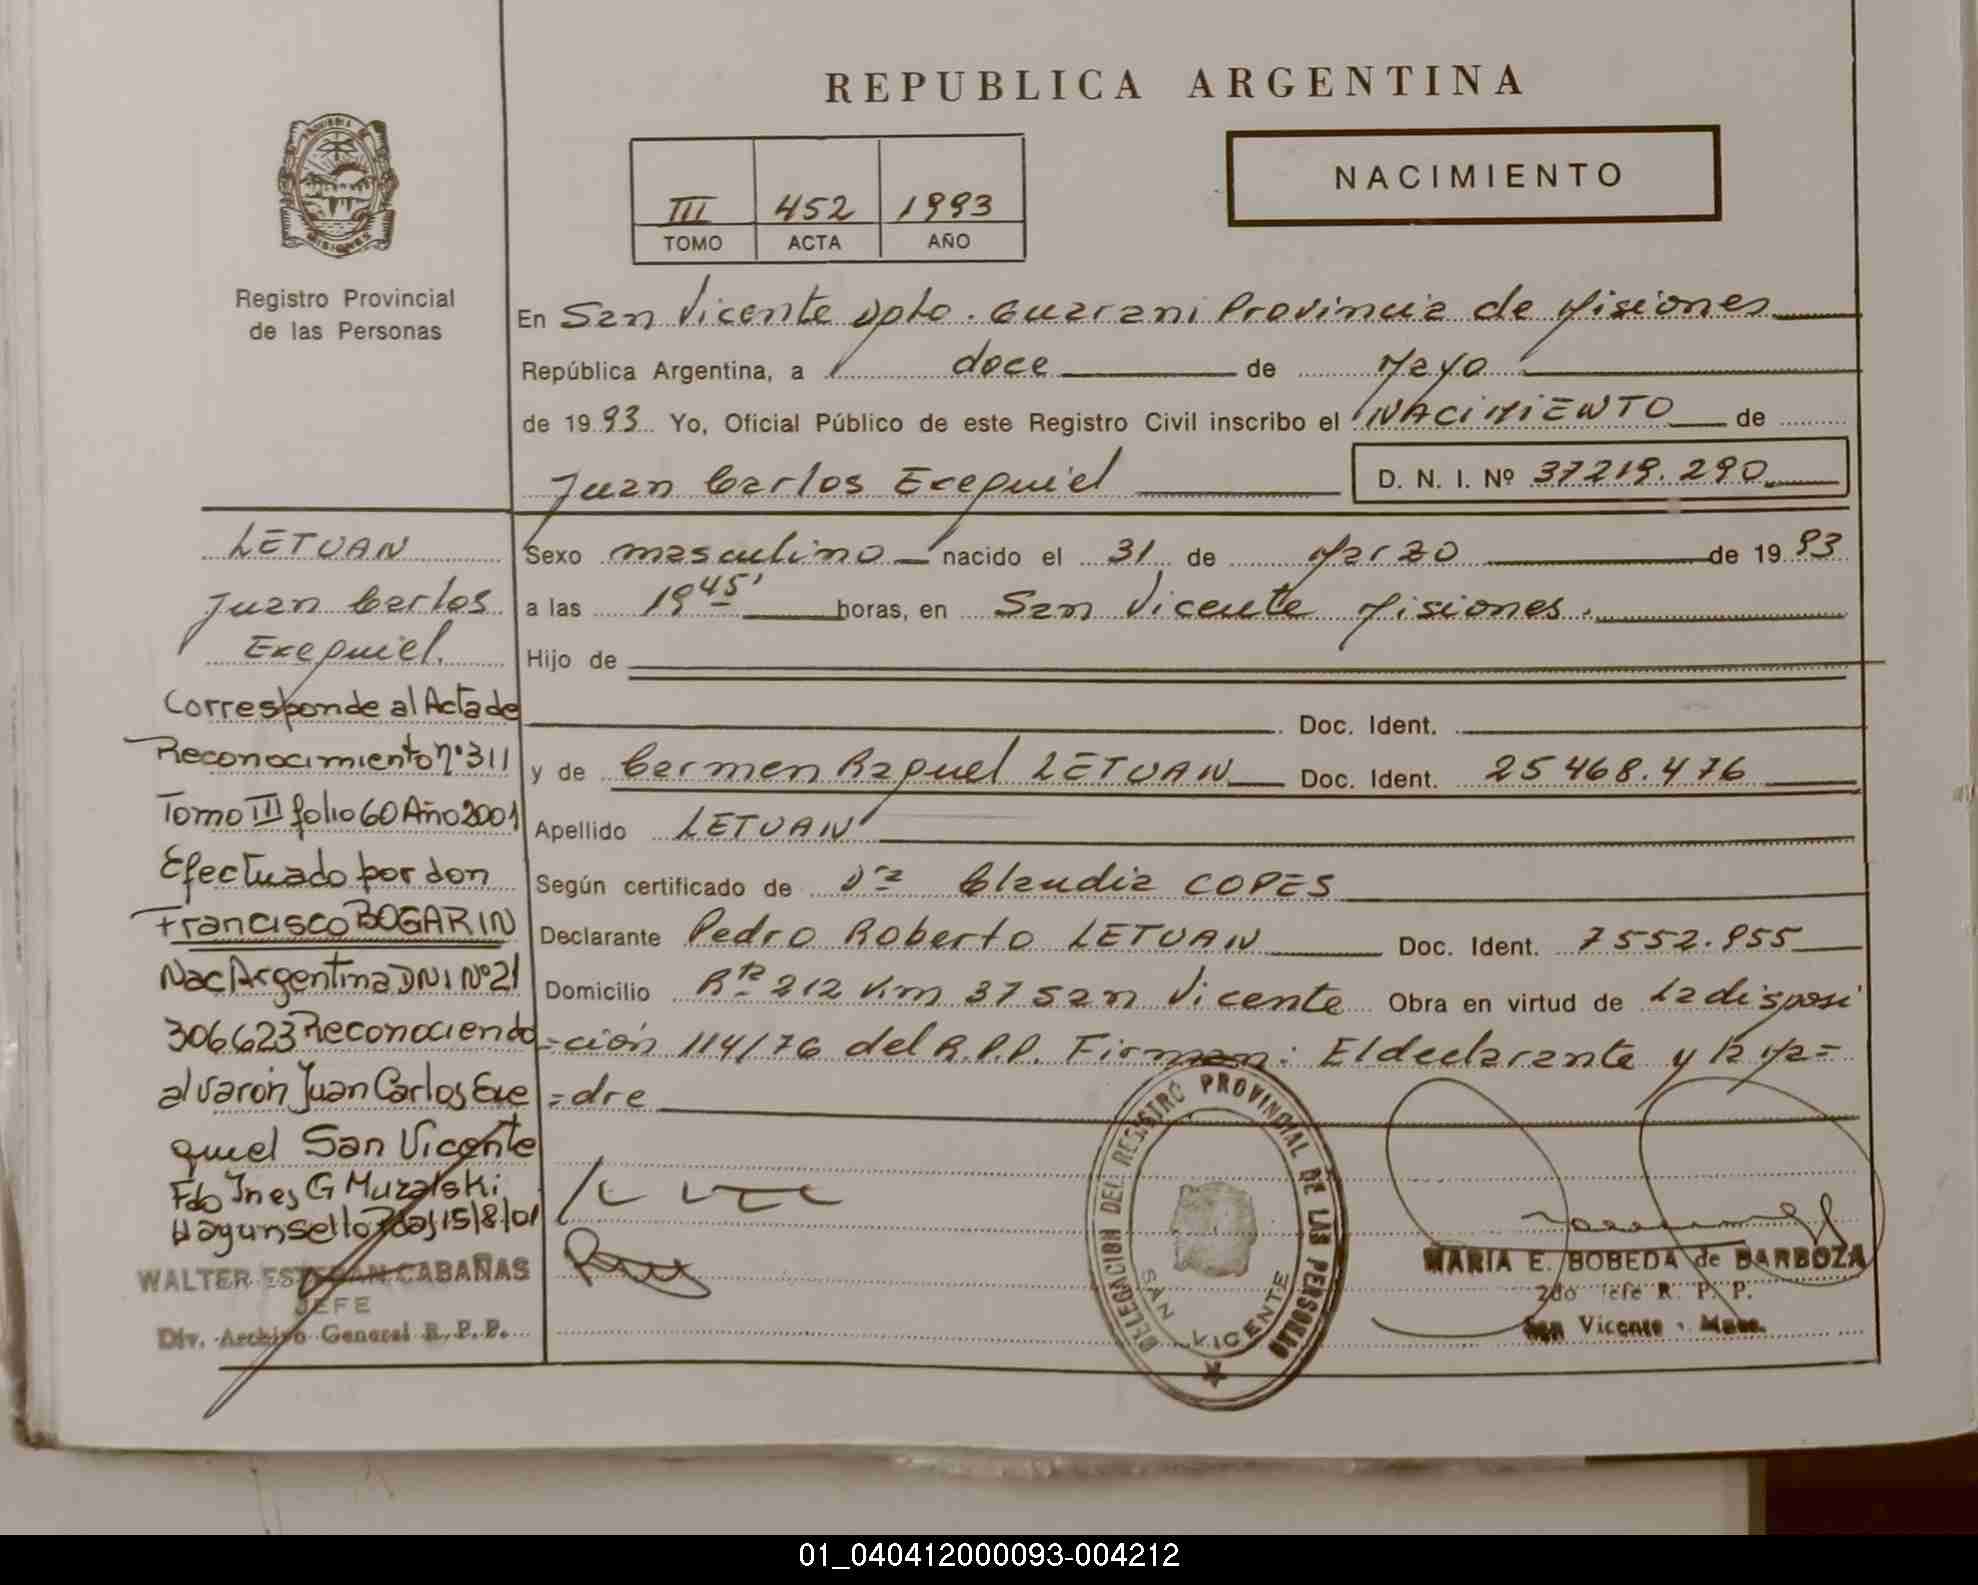 REPUBLICA ARGENTINA
PROVINCIA DE
MISIONES
Registro Provincial
de las Personas
III 452 1993
TOMO ACTA AÑO
NACIMIENTO
En San Vicente Dpto. Guarani Provincia de Misiones
República Argentina, a doce de Mayo
de 1993 Yo, Oficial Público de este Registro Civil inscribo el NACIMIENTO de
Juan Carlos Exequiel D. N. I. Nº 37219.290
Sexo masculino nacido el 31 de Marzo de 1993
a las 19 45' horas, en San Vicente Misiones.
Hijo de
Doc. Ident.
y de Carmen Raquel LETUAN Doc. Ident. 25468.476
Apellido LETUAN
Según certificado de Dra Claudia COPES
Declarante Pedro Roberto LETUAN Doc. Ident. 7552.955
Domicilio Rta 212 Km 37 San Vicente Obra en virtud de La disposi
=ción 114/76 del R.P.P. Firman: El declarante y la Ma=
=dre
LETUAN
Juan Carlos
Exequiel.
Corresponde al Acta de
Reconocimiento nº 311
Tomo III folio 60 Año 2001
Efectuado por don
Francisco BOGARIN
Nac Argentina DNI Nº 21
306623 Reconociendo
al varon Juan Carlos Exe
quiel San Vicente
Fdo Ines G Muzalski
Hay un sello Pdas 15/8/01
WALTER ESTEBAN CABAÑAS
JEFE
Div. Archivo General R.P.P.
DELEGACION DEL REGISTRO PROVINCIAL DE LAS PERSONAS
SAN VICENTE
MARIA E. BOBEDA de BARBOZA
2do Jefe R. P. P.
San Vicente - Mnes.
01_040412000093-004212